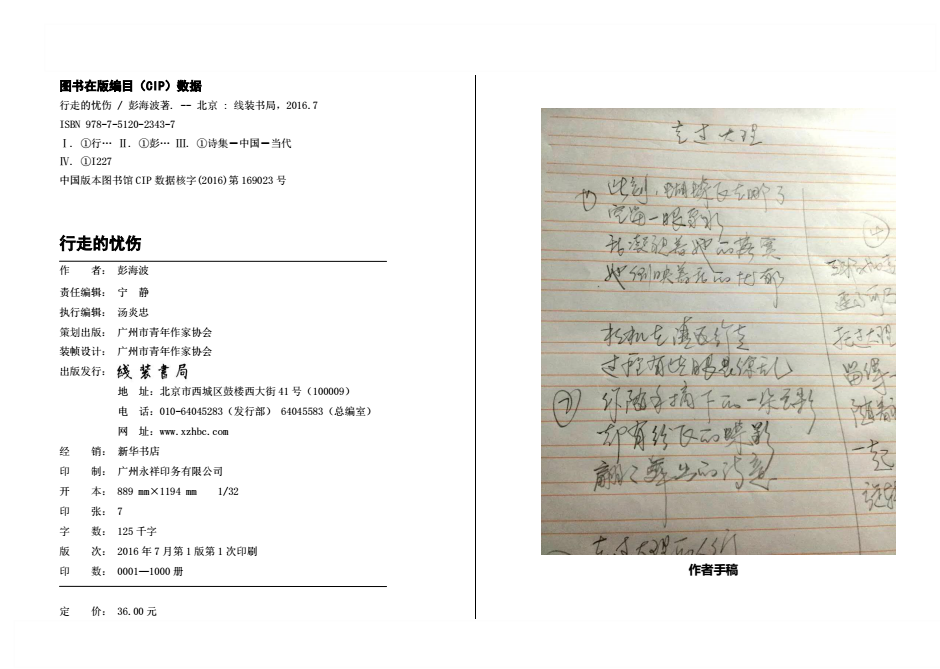 图书在版编目（CIP）数据
行走的忧伤 / 彭海波著. -- 北京 : 线装书局, 2016.7
ISBN 978-7-5120-2343-7
Ⅰ. ①行… Ⅱ. ①彭… Ⅲ. ①诗集－中国－当代
Ⅳ. ①I227
中国版本图书馆CIP数据核字(2016)第169023号
行走的忧伤
作　　者： 彭海波
责任编辑： 宁　静
执行编辑： 汤炎忠
策划出版： 广州市青年作家协会
装帧设计： 广州市青年作家协会
出版发行： 线装书局
地　址：北京市西城区鼓楼西大街41号（100009）
电　话：010-64045283（发行部） 64045583（总编室）
网　址：www.xzhbc.com
经　　销： 新华书店
印　　制： 广州永祥印务有限公司
开　　本： 889 mm×1194 mm　1/32
印　　张： 7
字　　数： 125千字
版　　次： 2016年7月第1版第1次印刷
印　　数： 0001—1000册
定　　价： 36.00元
走过大理
此刻，蝴蝶飞去哪了
空留一眼泉水
我凝视着她的寂寞
她倒映着我的忧郁
过程有些眼花缭乱
你随手摘下的一朵云彩
却有纷飞的蝶影
翩翩舞出的诗意
走过大理
留得一
随着
一起
作者手稿